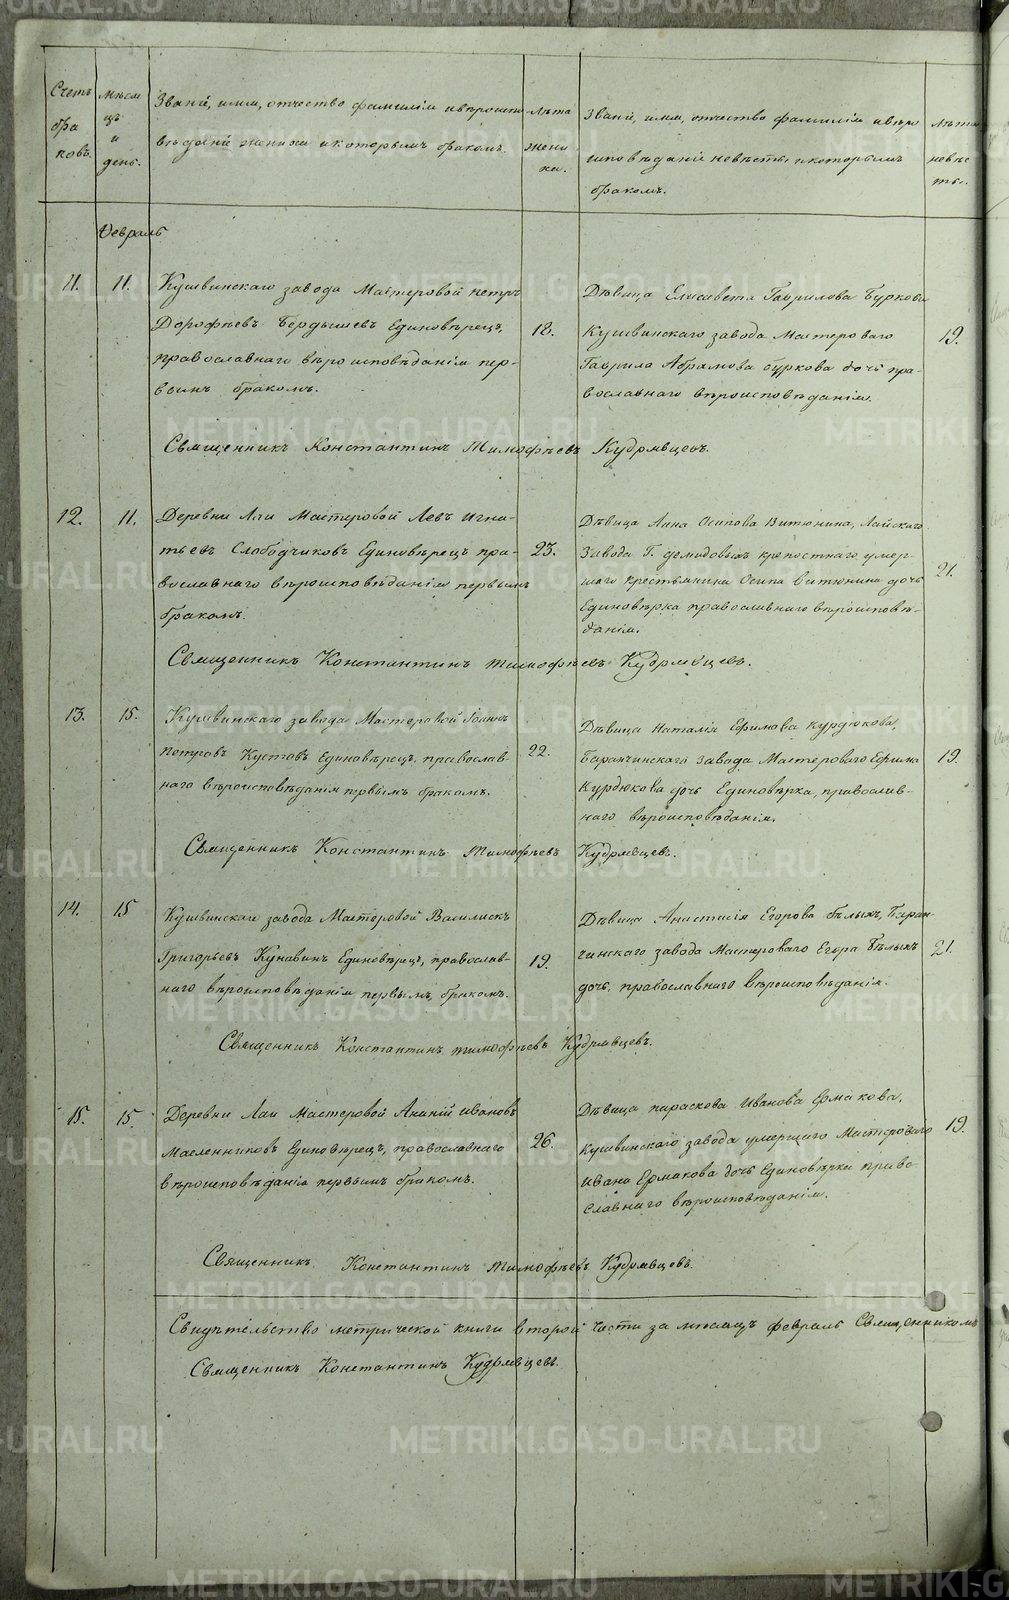 Счетъ
бра
ковъ.
Мѣся
цъ
и
день.
Званіе, имя, отчество фамилія и вѣроиспо
вѣданіе жениха и которымъ бракомъ.
Лѣта
жени
ха.
Званіе, имя, отчество фамилія и вѣро
исповѣданіе невѣсты и которымъ
бракомъ.
Лѣта
невѣс
ты.
Февраль
11.
11.
Кушвинскаго завода Мастеровой Петръ
Дорофѣевъ Бердышевъ Единовѣрецъ,
православнаго вѣроисповѣданія пер-
вымъ бракомъ.
18.
Дѣвица Елисавета Гаврилова Буркова
Кушвинскаго завода Мастероваго
Гаврила Абрамова Буркова дочь пра-
вославнаго вѣроисповѣданія.
19.
Священникъ Константинъ Тимофѣевъ Кудрявцевъ.
12.
11.
Деревни Лаи Мастеровой Левъ Игна-
тьевъ Слободчиковъ Единовѣрецъ пра-
вославнаго вѣроисповѣданія первымъ
бракомъ.
23.
Дѣвица Анна Осипова Витюнина, Лайскаго
завода Г. Демидовыхъ крепостнаго умер-
шаго крестьянина Осипа Витюнина дочь
Единовѣрка православнаго вѣроисповѣ-
данія.
21.
Священникъ Константинъ Тимофѣевъ Кудрявцевъ.
13.
15.
Кушвинскаго завода Мастеровой Іоаннъ
Петровъ Кустовъ Единовѣрецъ, православ-
наго вѣроисповѣданія первымъ бракомъ.
22.
Дѣвица Наталія Ефимова Курдюкова,
Баранчинскаго завода Мастероваго Ефима
Курдюкова дочь Единовѣрка, православ-
наго вѣроисповѣданія.
19.
Священникъ Константинъ Тимофѣевъ Кудрявцевъ.
14.
15
Кушвинскаго завода Мастеровой Василискъ
Григорьевъ Кунавинъ Единовѣрецъ, православ-
наго вѣроисповѣданія первымъ бракомъ.
19.
Дѣвица Анастасія Егорова Бѣлыхъ, Баран-
чинскаго завода Мастероваго Егора Бѣлыхъ
дочь, православнаго вѣроисповѣданія.
21.
Священникъ Константинъ Тимофѣевъ Кудрявцевъ.
15.
15.
Деревни Лаи Мастеровой Ананій Ивановъ
Масленниковъ Единовѣрецъ, православнаго
вѣроисповѣданія первымъ бракомъ.
26.
Дѣвица Параскова Иванова Ермакова,
Кушвинскаго завода умершаго Мастероваго
Ивана Ермакова дочь Единовѣрка право-
славнаго вѣроисповѣданія.
19.
Священникъ Константинъ Тимофѣевъ Кудрявцевъ.
Свидѣтельство метрической книги второй части за мѣсяцъ февраль Священникомъ
Священникъ Константинъ Кудрявцевъ.